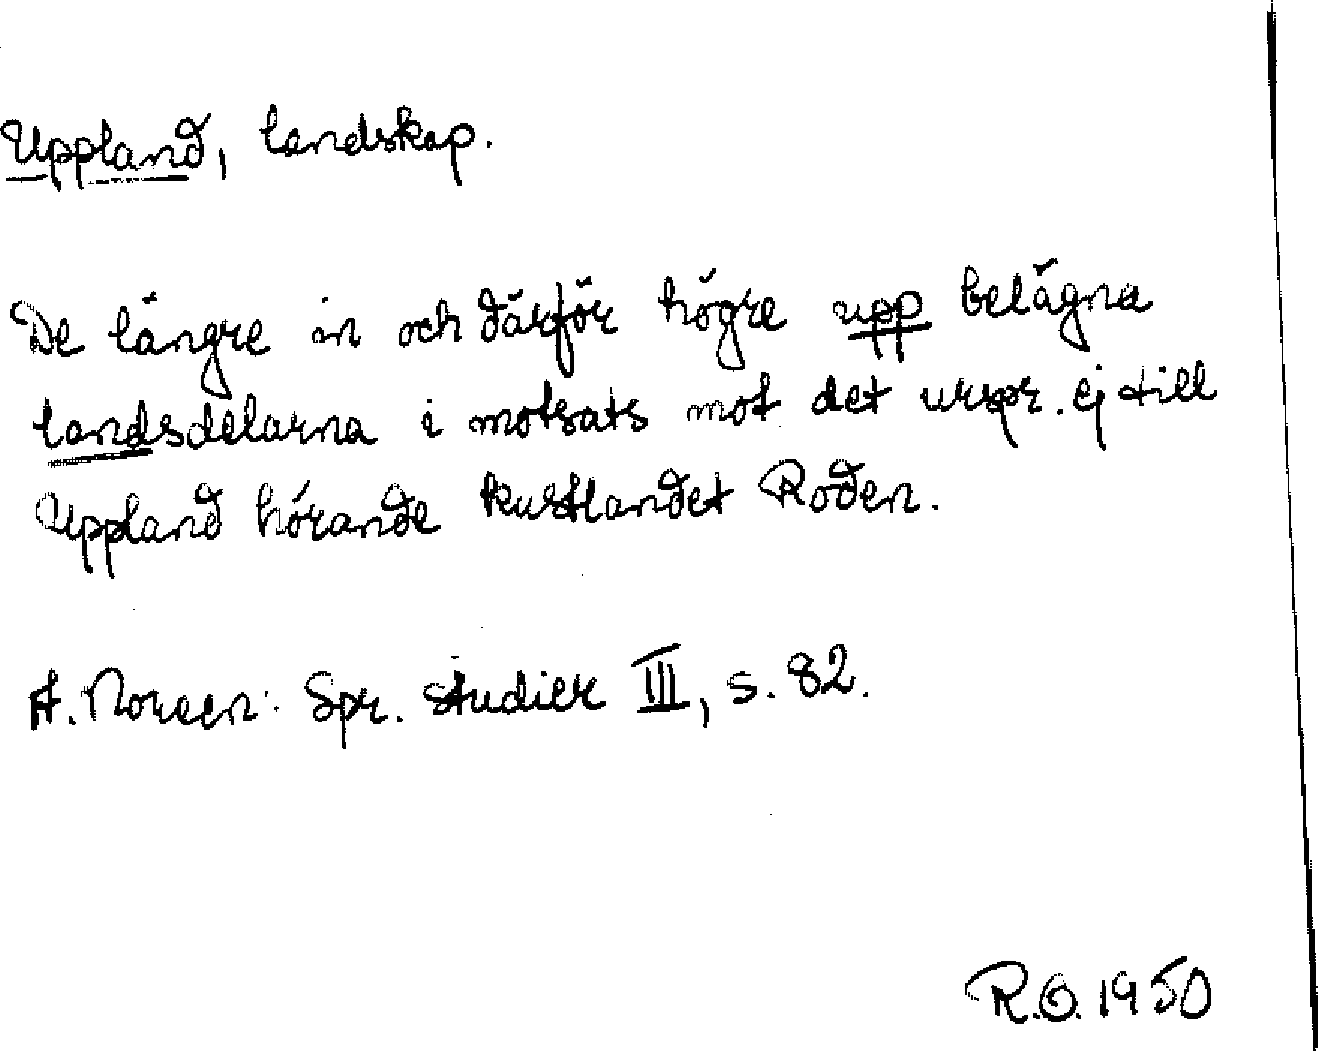 Uppland, landskap.
De längre in och därför högre upp belägna
landsdelarna i motsats mot det urspr. ej till
Uppland hörande kustlandet Roden.
A. Noreen: Spr. studier III, s. 82.
R.O. 1950